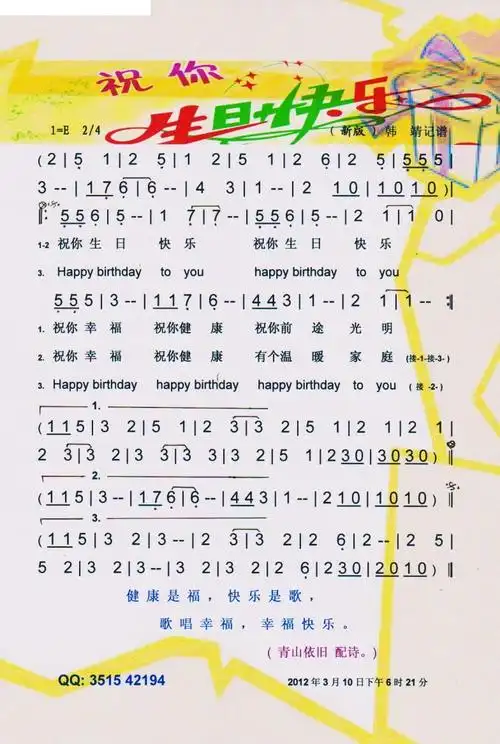 祝你
生日快乐
1=E 2/4 （新版）韩 靖记谱
(2|5 1|2 5|1 2|5 1|2 6|2 5|555|
3--|1766|--|4 3|1--|2 10|1010)
‖:556|5--|1 77|--|556|5--|2 1|1 0|
1-2 祝你 生 日 快 乐 祝你 生 日 快 乐
3. Happy birthday to you happy birthday to you
555|3--|117|6--|443|1--|2 1|1--:‖
1. 祝你 幸 福 祝你 健 康 祝你前 途 光 明
2. 祝你 幸 福 祝你 健 康 有个温 暖 家 庭 (接-1-接-3-)
3. Happy birthday happy birthday happy birthday to you (接 -2-)
1.
(115|3 2|5 1|2 3|3 2|5 1|2 1|2 1|
2 3|3 2|5 1|2 3|3 2|5 1|230|3030)
2.
(115|3--|176|6--|443|1--|210|1010)
3.
(115|3 2|3--|2 3|3 2|5 1|2 1|2 5|
5 2|3 2|3--|2 3|3 2|5 1|210|1010)
健康是福，快乐是歌，
歌唱幸福，幸福快乐。
(青山依旧 配诗。)
QQ: 3515 42194 2012年3月10日下午6时21分